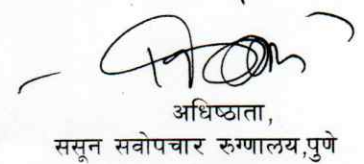 अधिष्ठाता,
ससून सवोपचार रुग्णालय,पुणे